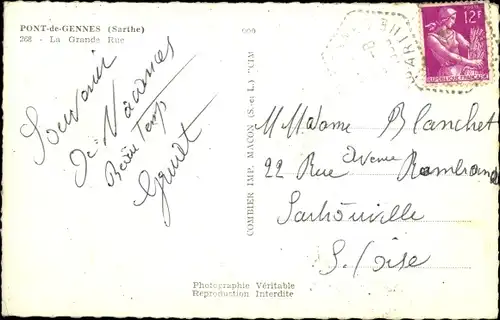 PONT-de-GENNES (Sarthe)
268 - La Grande Rue
Souvenir
De Vacances
Beau Temps
COMBIER IMP. MACON (S.-et-L.) "CIM"
12F
POSTES
REPUBLIQUE FRANÇAISE
M. Madame Blanchet
22 Rue Avenue
Sartrouville
S./Oise
Photographie Véritable
Reproduction Interdite